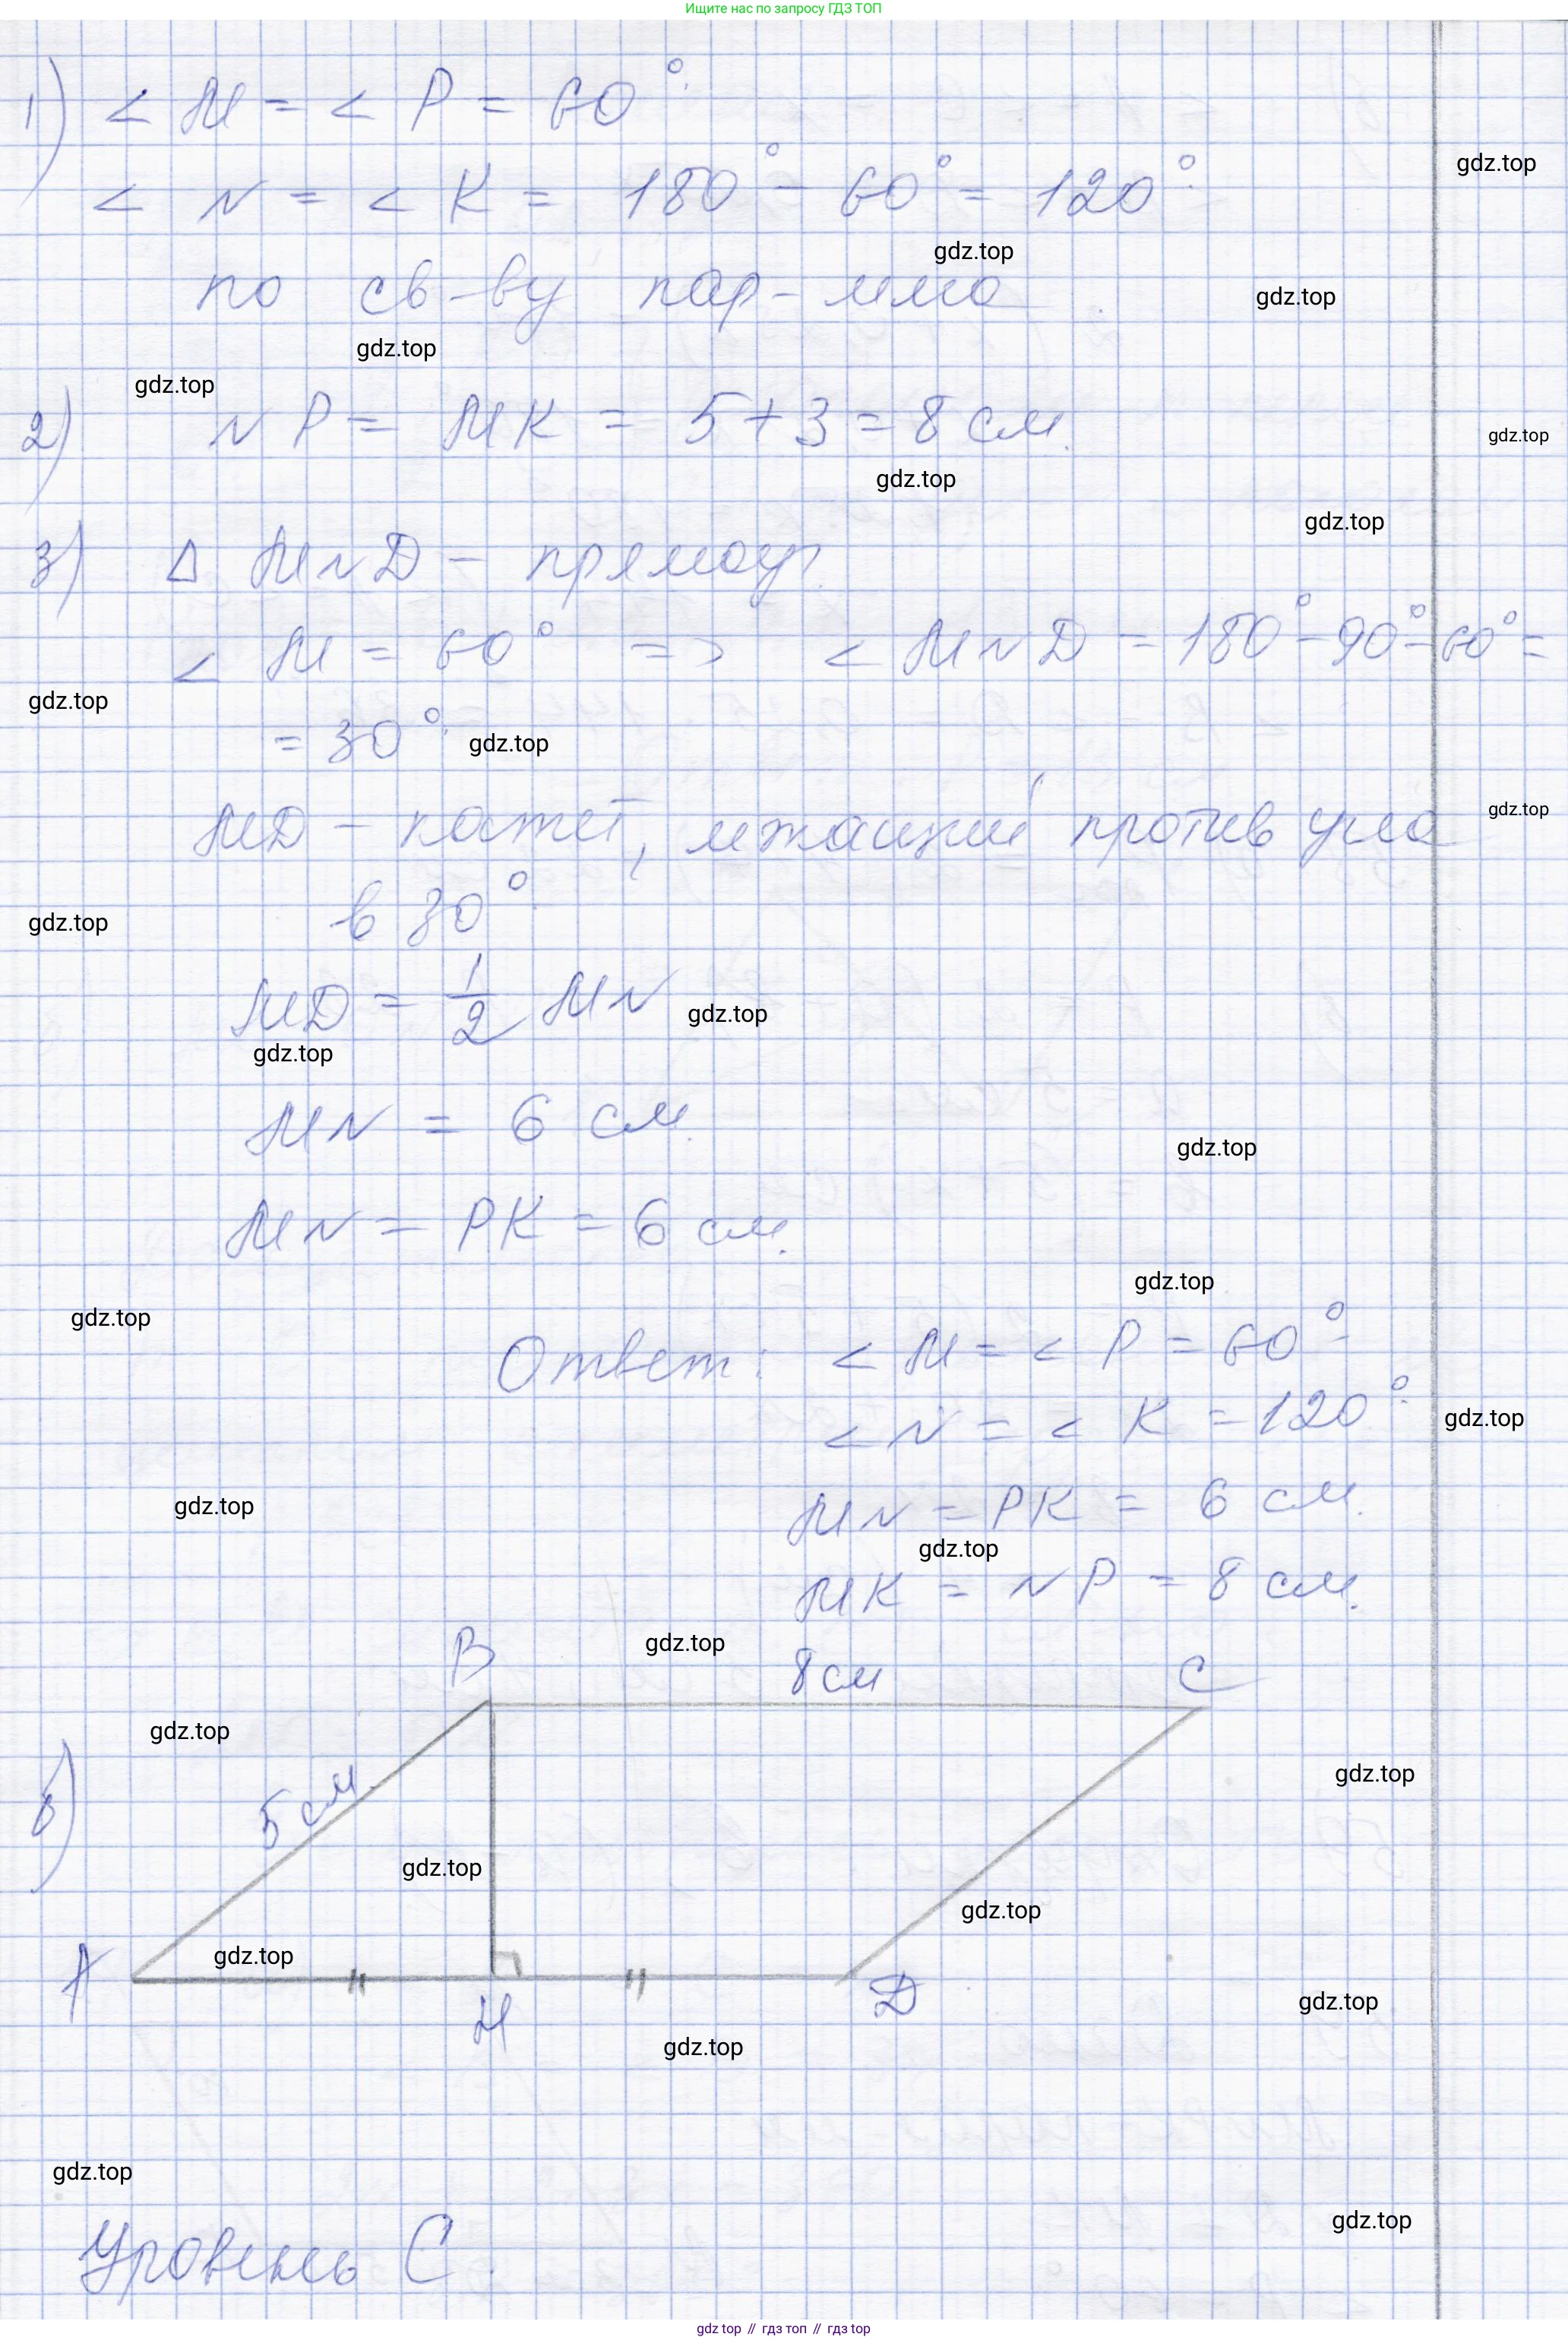 Ищите нас по запросу ГДЗ ТОП
1) < M = < P = 60°.
gdz.top
< N = < K = 180° - 60° = 120°.
gdz.top
по св-ву пар-мма.
gdz.top
gdz.top
gdz.top
2) NP = MK = 5 + 3 = 8 см.
gdz.top
gdz.top
gdz.top
3) Δ MND - прямоуг.
< M = 60° => < MND = 180° - 90° - 60° =
gdz.top
= 30°.
gdz.top
MD - катет, лежащий против угла
gdz.top
в 30°.
gdz.top
MD = 1/2 MN
gdz.top
gdz.top
MN = 6 см.
gdz.top
MN = PK = 6 см.
gdz.top
gdz.top
Ответ: < M = < P = 60°
< N = < K = 120°.
gdz.top
gdz.top
MN = PK = 6 см.
gdz.top
MK = NP = 8 см.
gdz.top
B 8 см C
gdz.top
gdz.top
в) 5 см.
gdz.top
gdz.top
gdz.top
A H D
gdz.top
gdz.top
gdz.top
gdz.top
Уровень C.
gdz top // гдз топ // гдз top